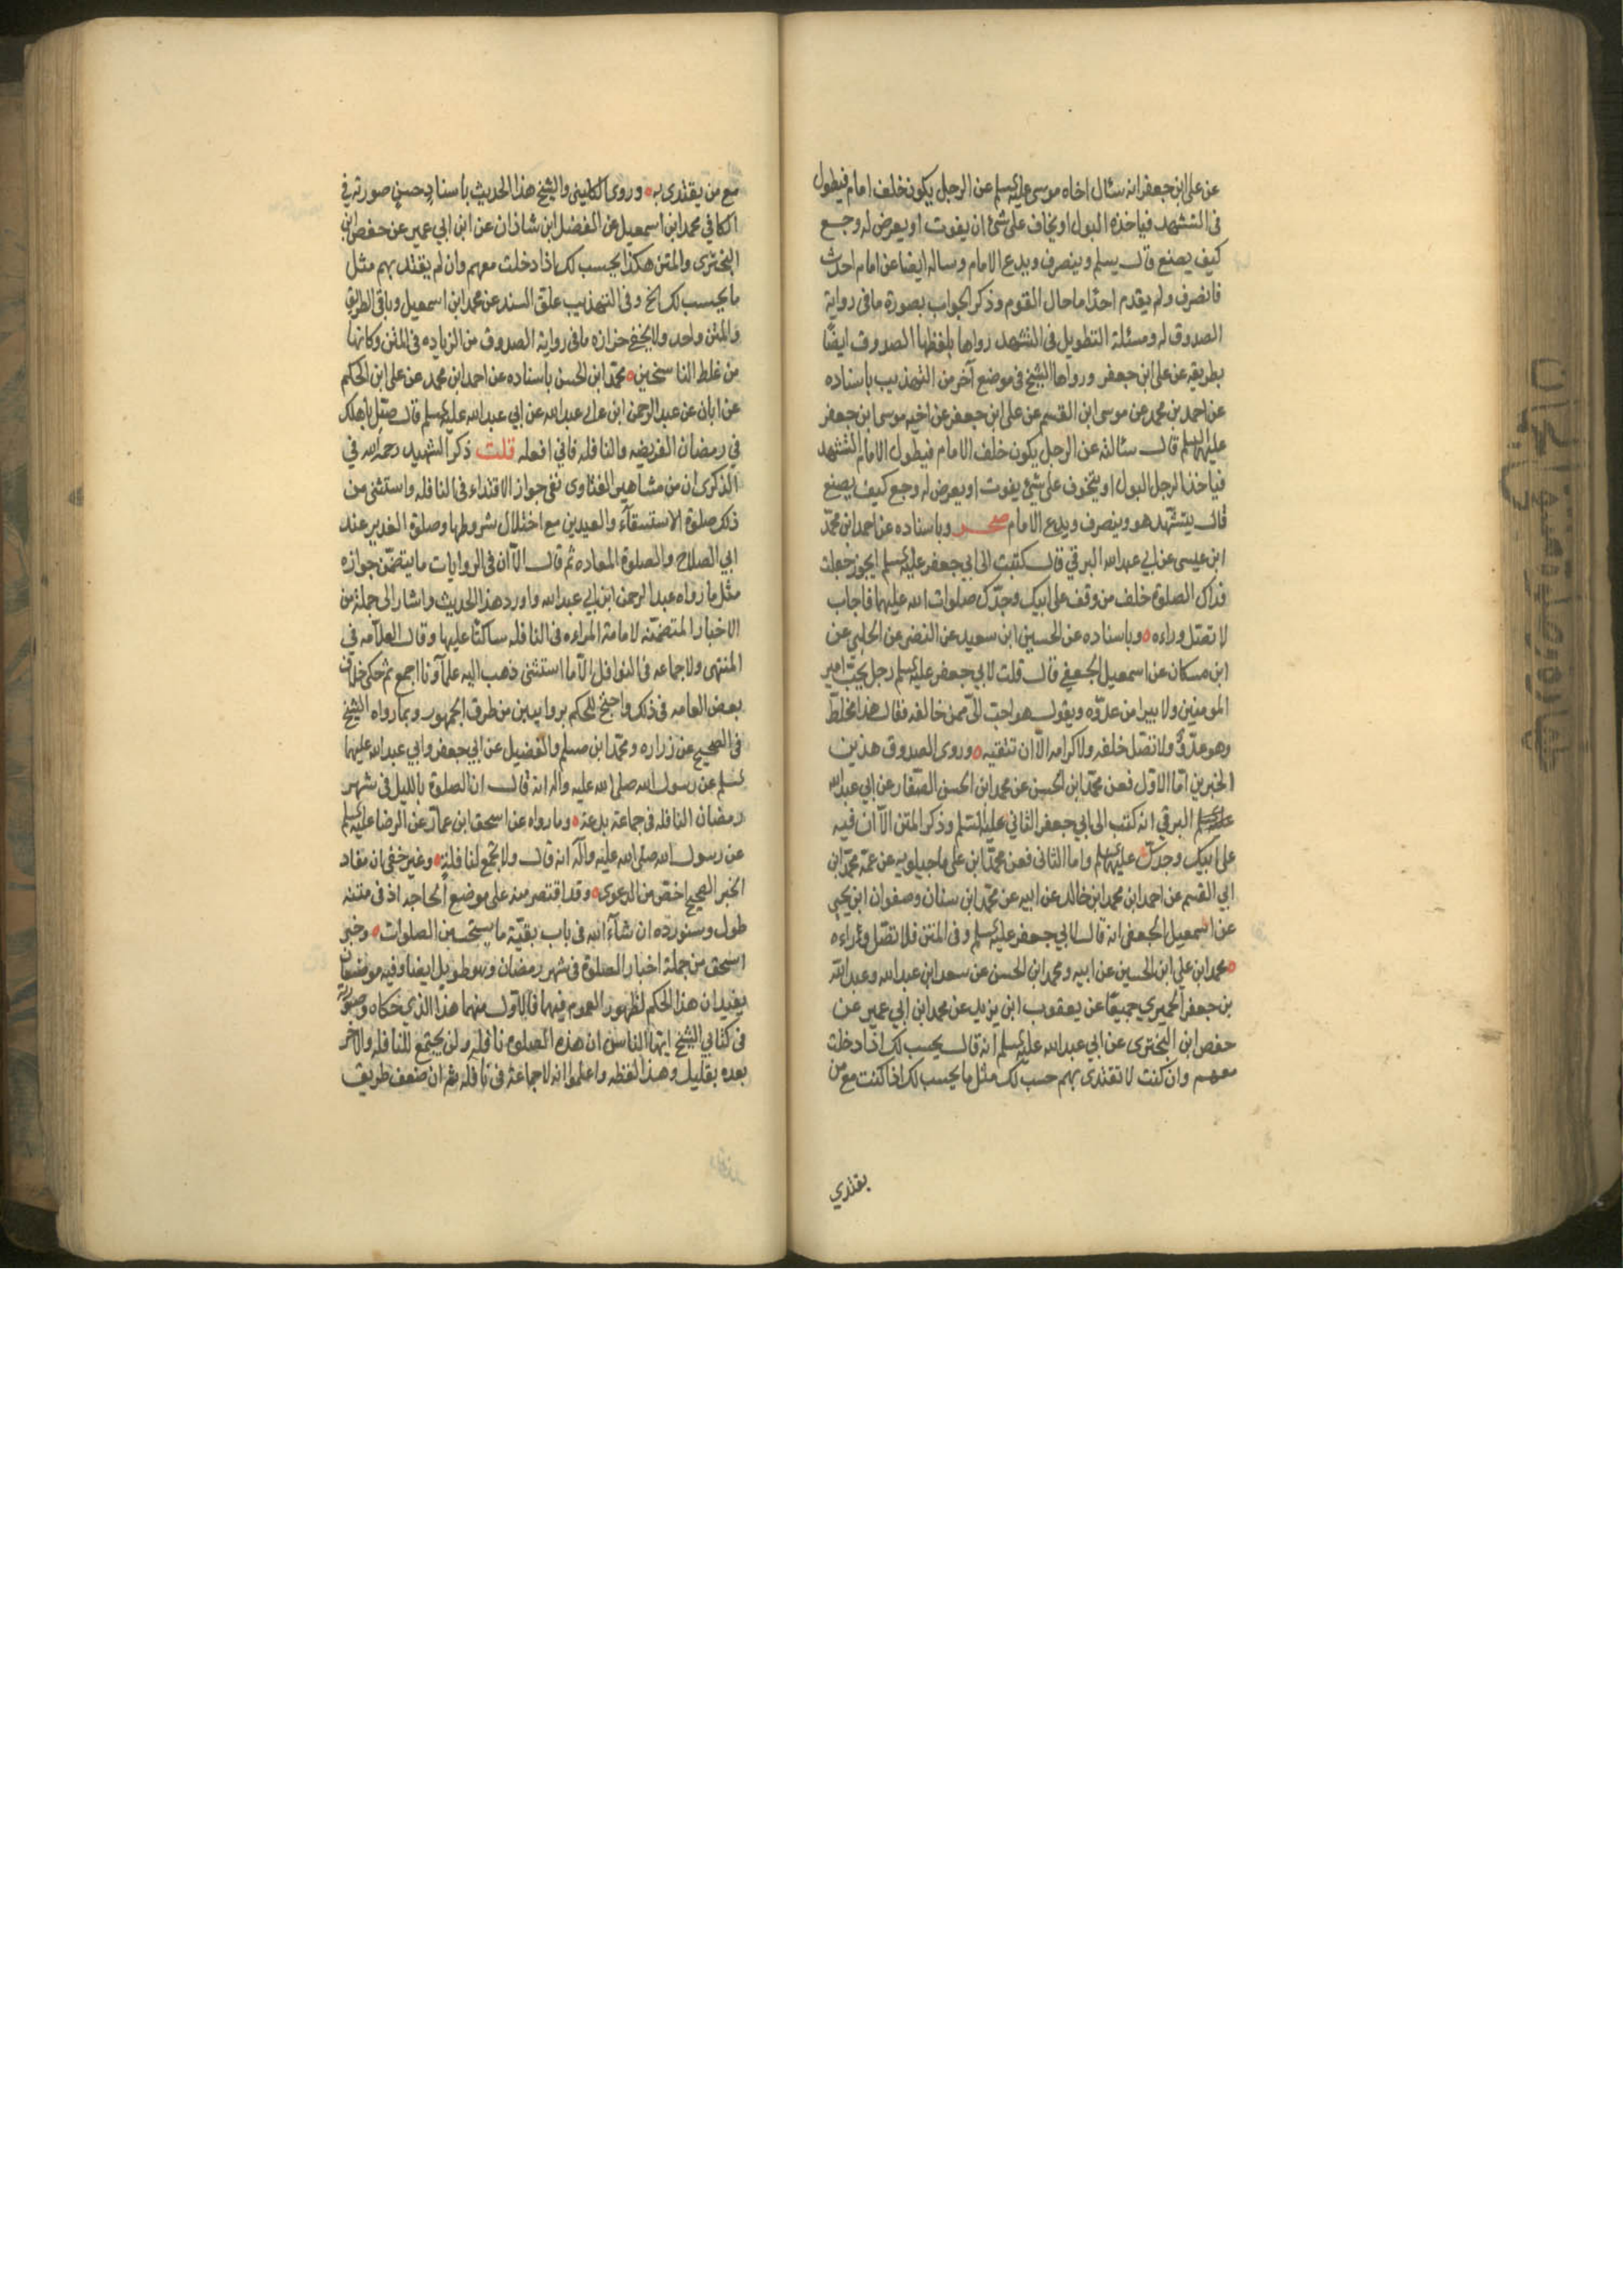 عن علي ابن جعفر انه سئال اخاه موسى عليه السلم عن الرجل يكون خلف امام فيطول
فى التشهد فياخذه البول او يخاف على شئ ان يفوت او يعرض له وجع
كيف يصنع قال يسلم وينصرف ويدع الامام وساله ايضا عن امام احدث
فانصرف ولم يقدم احدًا ما حال القوم وذكر الجواب بصورة ما فى رواية
الصدوق له ومسئلة التطويل فى التشهد رواها بلفظها الصدوق ايضًا
بطريقه عن على ابن جعفر ورواها الشيخ فى موضع آخر من التهذيب باسناده
عن احمد بن محمد عن موسى ابن القسم عن على ابن جعفر عن اخيه موسى ابن جعفر
عليهما السلم قال سئالته عن الرجل يكون خلف الامام فيطول الامام التشهد
فياخذ الرجل البول او يتخوف على شئ يفوت او يعرض له وجع كيف يصنع
قال يتشهد هو وينصرف ويدع الامام صحر وباسناده عن احمد ابن محمد
ابن عيسى عن ابي عبد الله البرقي قال كتبت الى ابي جعفر عليه السلم ايجوز جعلت
فداك الصلوة خلف من وقف على ابيك وجدّك صلوات الله عليهما فاجاب
لا تصل وراءه وباسناده عن الحسين ابن سعيد عن النضر عن الحلبي عن
ابن مسكان عن اسمعيل الجعفي قال قلت لابي جعفر عليه السلم رجل يحب امير
المومنين ولا يبرا من عدوه ويقول هو احب الىّ ممن خالفه فقال هذا مخلط
وهو عدوّ ولا تصل خلفه ولا كرامه الّا ان تتقيه وروى الصدوق هذين
الخبرين اما الاول فعن محمد ابن الحسن عن محمد ابن الحسن الصفار عن ابي عبد الله
البرقي انه كتب الى ابي جعفر الثاني عليه السلم وذكر المتن الّا ان فيه
على ابيك وجدك عليهما السلم واما الثانى فعن محمد ابن على ماجيلويه عن عمّه محمد ابن
ابي القسم عن احمد ابن محمد ابن خالد عن ابيه عن محمد ابن سنان وصفوان ابن يحيى
عن اسمعيل الجعفى انه قال لابي جعفر عليه السلم وفى المتن فلا تصل وراءه
محمد ابن علي ابن الحسين عن ابيه ومحمد ابن الحسن عن سعد ابن عبد الله وعبد الله
بن جعفر الحميري جميعًا عن يعقوب ابن يزيد عن محمد ابن ابي عمير عن
حفص ابن البخترى عن ابي عبد الله عليه السلم انه قال يحسب لك اذا دخلت
معهم وان كنت لا تقتدى بهم حسب لك مثل ما يحسب لك اذا كنت مع من
يقتدي
مع من يقتدى به وروى الكلينى والشيخ هذا الحديث باسناد حسن صورته في
الكافي محمد ابن اسمعيل عن الفضل ابن شاذان عن ابن ابي عمير عن حفص ابن
البخترى والمتن هكذا يحسب لك اذا دخلت معهم وان لم يقتد بهم مثل
ما يحسب لك الخ وفى التهذيب علق السند عن محمد ابن اسمعيل وباقى الطريق
والمتن واحد ولا يخفى حزازه ما فى رواية الصدوق من الزياده فى المتن وكانها
من غلط الناسخين محمد ابن الحسن باسناده عن احمد ابن محمد عن على ابن الحكم
عن ابان عن عبد الرحمن ابن ابي عبد الله عن ابي عبد الله عليه السلم قال صل باهلك
في رمضان الفريضه والنافله فاني افعله قلت ذكر الشهيد رحمه الله في
الذكرى ان من مشاهير الفتاوى نفى جواز الاقتداء فى النافله واستثنى من
ذلك صلوة الاستسقاء والعيدين مع اختلال شروطها وصلوة الغدير عند
ابي الصلاح والصلوة المعاده ثم قال الّا ان فى الروايات ما يتضمن جوازه
مثل ما رواه عبد الرحمن ابن ابي عبد الله واورد هذا الحديث واشار الى جملة من
الاخبار المتضمّنه لامامة المراءه فى النافله ساكتًا عليها وقال العلّامه في
المنتهى ولا جماعه فى النوافل الّا ما استثنى ذهب اليه علماونا اجمع ثم حكى خلاف
بعض العامه فى ذلك واحتج للحكم بروايتين من طرق الجمهور وبما رواه الشيخ
فى الصحيح عن زراره ومحمد ابن مسلم والفضيل عن ابي جعفر وابي عبد الله عليهما
السلم عن رسول الله صلى الله عليه واله انه قال ان الصلوة بالليل فى شهر
رمضان النافله فى جماعة بدعة وما رواه عن اسحق ابن عمار عن الرضا عليه السلم
عن رسول الله صلى الله عليه واله انه قال ولا تجمع لنافلة وغير خفى ان مفاد
الخبر الصحيح اخص من الدعوى وقد اقتصر منه على موضع الحاجه اذ فى متنه
طول وسنورده ان شاء الله فى باب بقيّة ما يستحسن الصلوات وخبر
اسحق من جملة اخبار الصلوة فى شهر رمضان وهو طويل ايضا وفيه موضعان
يفيدان هذا الحكم لظهور العموم فيهما فالاول منهما هذا الذي حكاه وصورته
فى كتابي الشيخ ايها الناس ان هذه الصلوه نافله ولن يجتمع للنافله والآخر
بعده بقليل وهذا لفظه واعلموا انه لا جماعة فى نافله ثم ان ضعف طريق